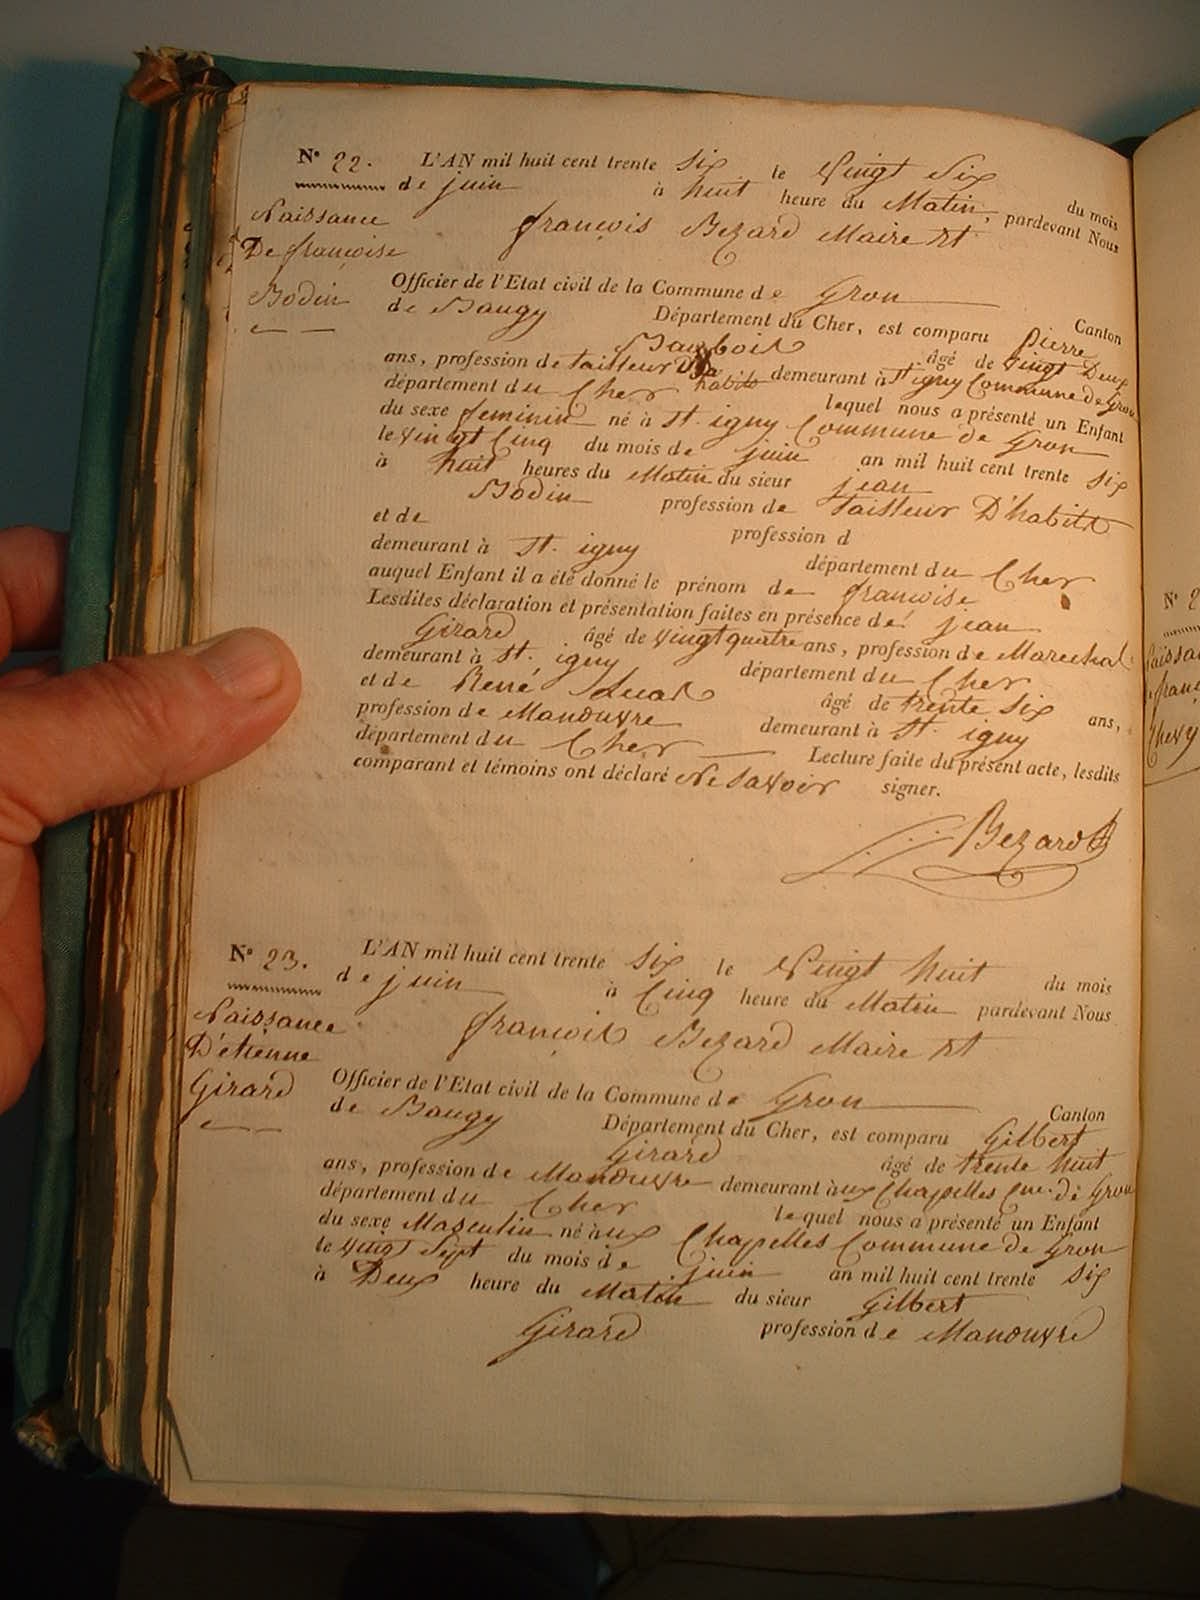 N° 22. L'AN mil huit cent trente Six le Vingt Six du mois
de juin à huit heure du Matin, pardevant Nous
Naissance
françois Bezard Maire Et
De françoise
Officier de l'Etat civil de la Commune de Gron Canton
Bodin
de Baugy Département du Cher, est comparu Pierre
âgé de vingt Deux
ans, profession de tailleur D'habits demeurant à St igny Commune de Gron
département du Cher lequel nous a présenté un Enfant
du sexe feminin né à St. igny Commune de Gron
le vingt Cinq du mois de juin an mil huit cent trente six
à huit heures du Matin du sieur jean
Bodin profession de tailleur D'habits
et de profession d
demeurant à St. igny département du Cher
auquel Enfant il a été donné le prénom de françoise
Lesdites déclaration et présentation faites en présence de jean
Girard âgé de vingt quatre ans, profession de Marechal
demeurant à St. igny département du Cher
et de René âgé de trente six ans,
profession de Manouvre demeurant à St. igny
département du Cher Lecture faite du présent acte, lesdits
comparant et témoins ont déclaré Ne Savoir signer.
Bezard
N° 23. L'AN mil huit cent trente Six le Vingt huit du mois
de juin à Cinq heure du Matin pardevant Nous
Naissance
françois Bezard Maire Et
D'étienne
Girard
Officier de l'Etat civil de la Commune de Gron Canton
de Baugy Département du Cher, est comparu Gilbert
Girard âgé de trente huit
ans, profession de Manouvre demeurant aux Chapelles Cne. de Gron
département du Cher lequel nous a présenté un Enfant
du sexe Masculin né aux Chapelles Commune de Gron
le vingt Sept du mois de juin an mil huit cent trente six
à Deux heure du Matin du sieur Gilbert
Girard profession de Manouvre
N° 2